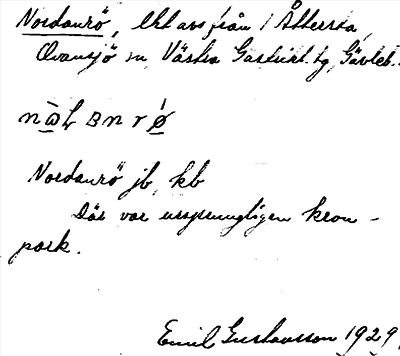 Nordanrö, lht avs från 1 Åttersta,
Ovansjö sn, Västra Gästrikl. tg, Gävleb.
Nordanrö jb, kb
Där var ursprungligen kron-
park.
Emil Gustavsson 1929